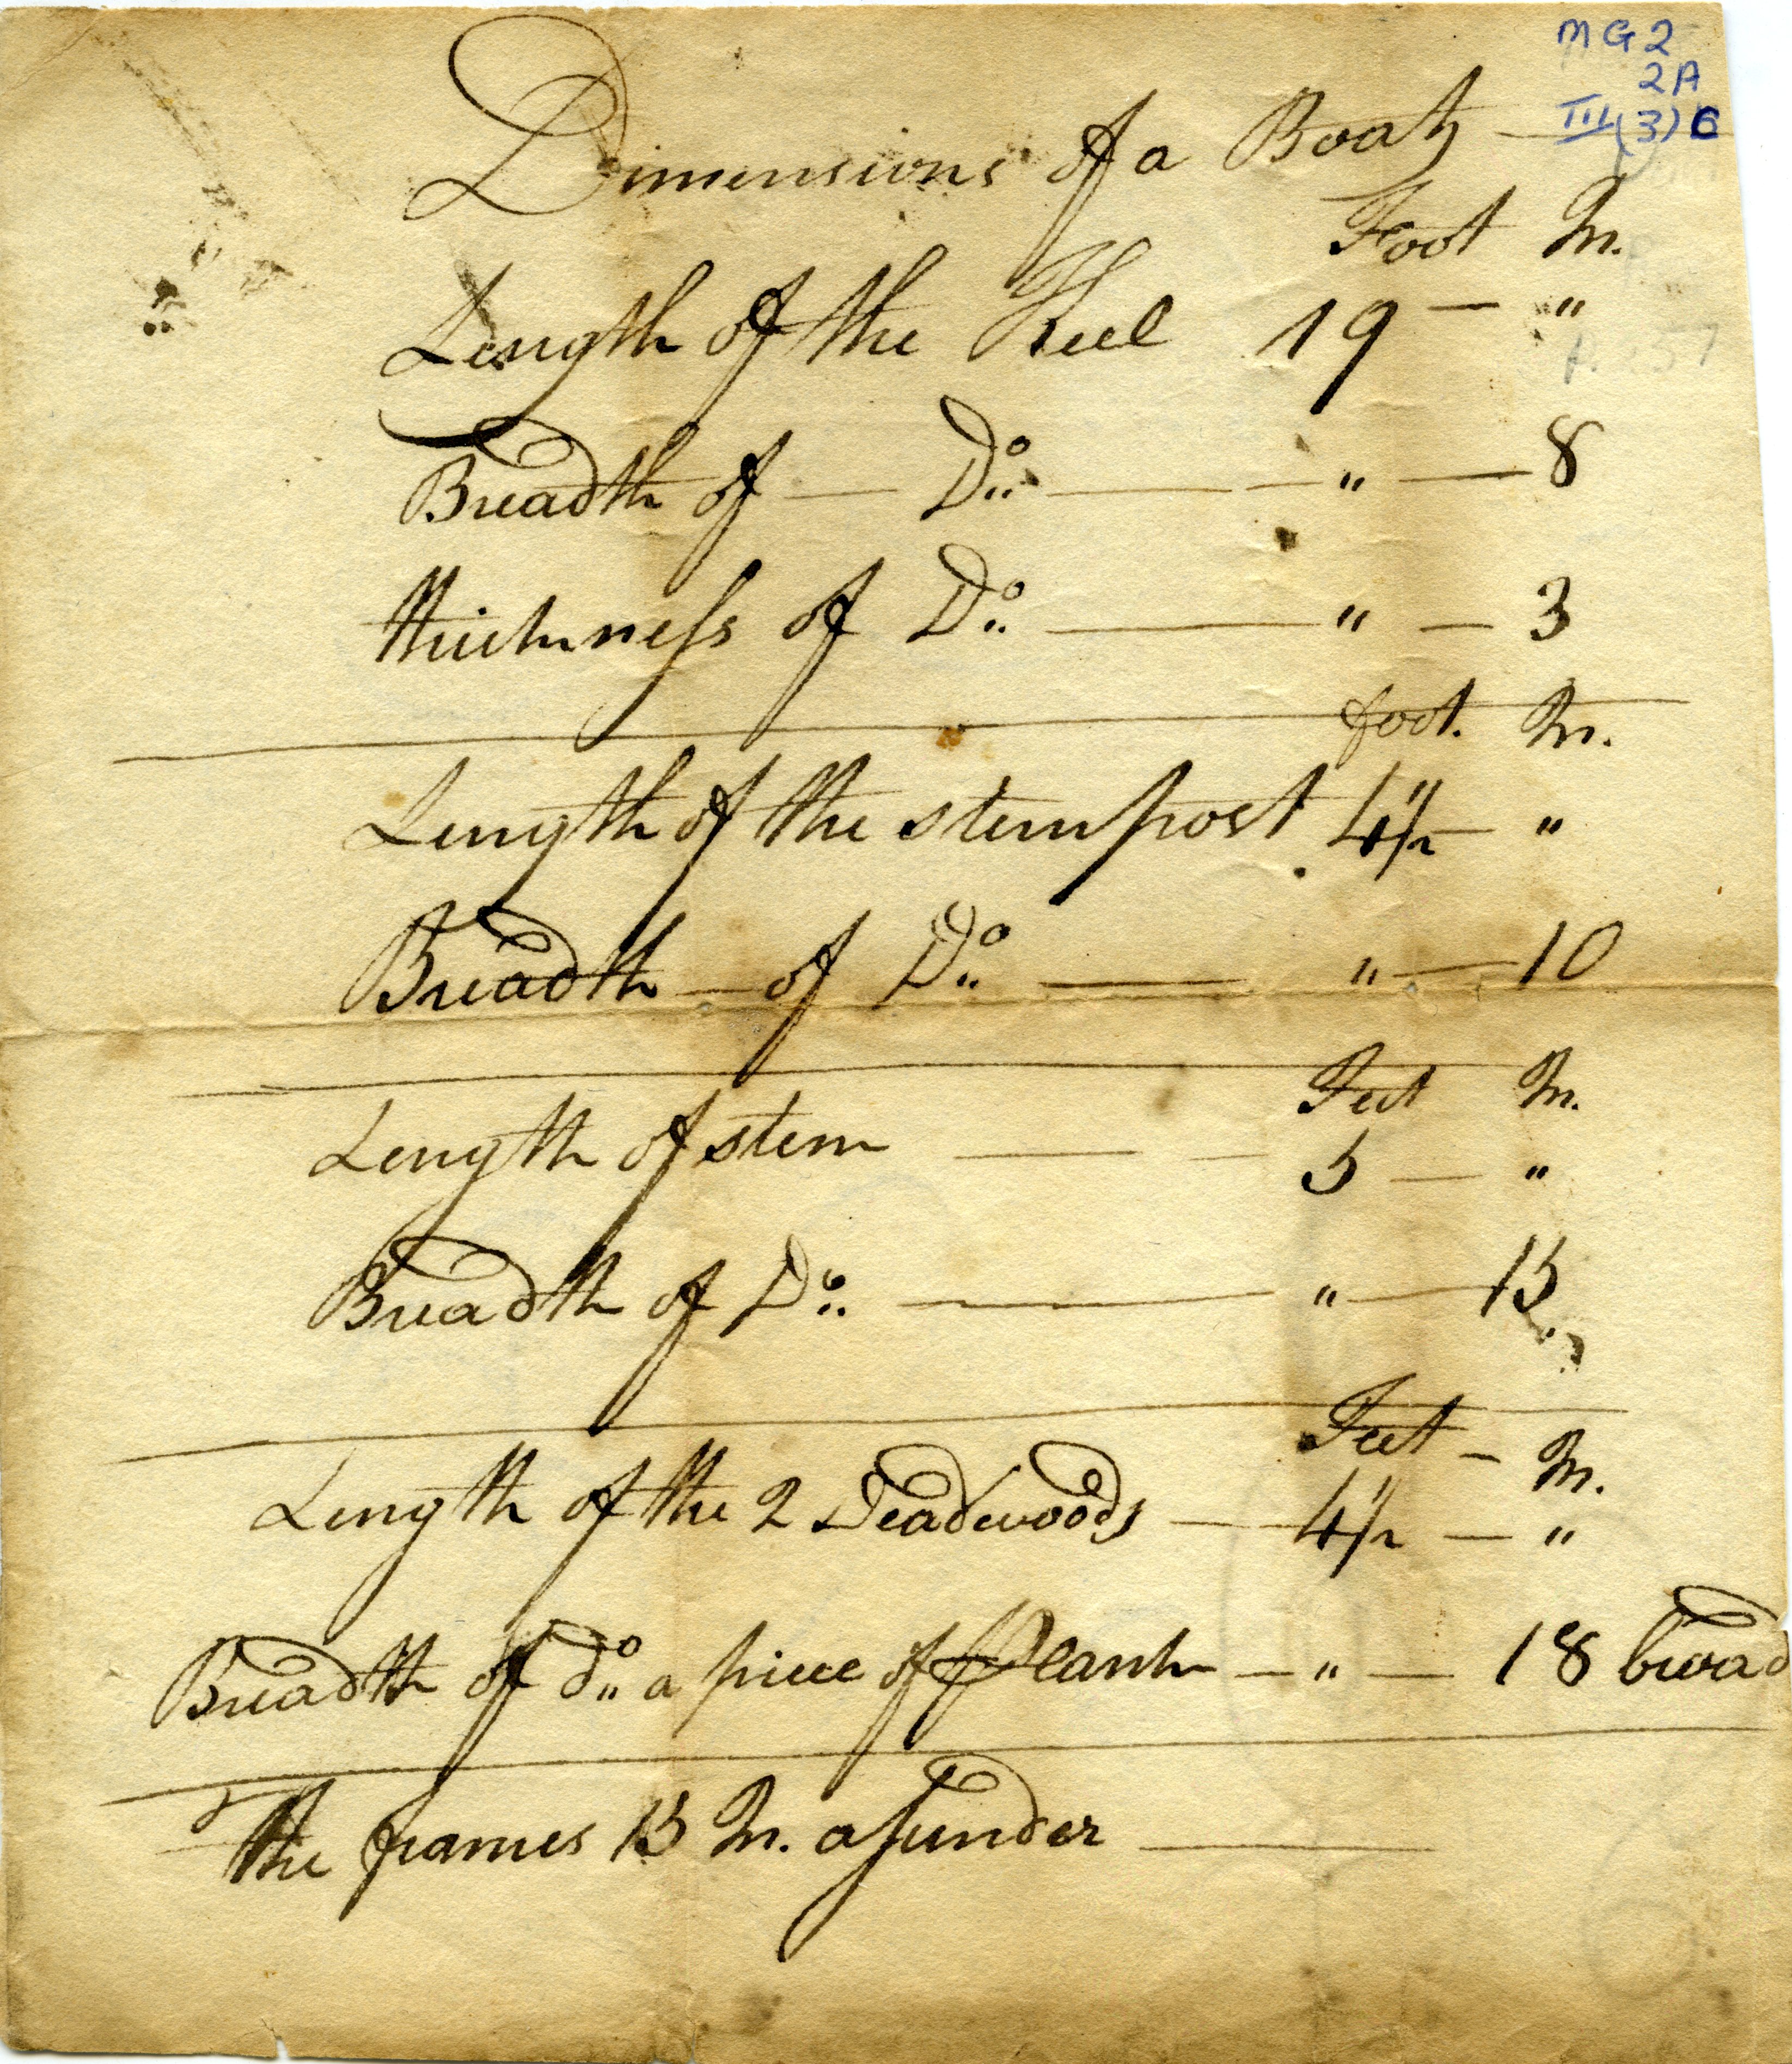 MG2
2A
III(3)6
Dimensions of a Boat
Foot In.
Length of the Keel 19 — "
Breadth of — Do. — " — 8
thickness of Do. — " — 3
foot. In.
Length of the sternpost 4 1/2 — "
Breadth — of Do. — " — 10
Feet In.
Length of stem — 5 — "
Breadth of Do. — " — 15
Feet — In.
Length of the 2 Deadwoods — 4 1/2 — "
Breadth of do. a piece of Plank — " — 18 broad
The frames 15 In. asunder —